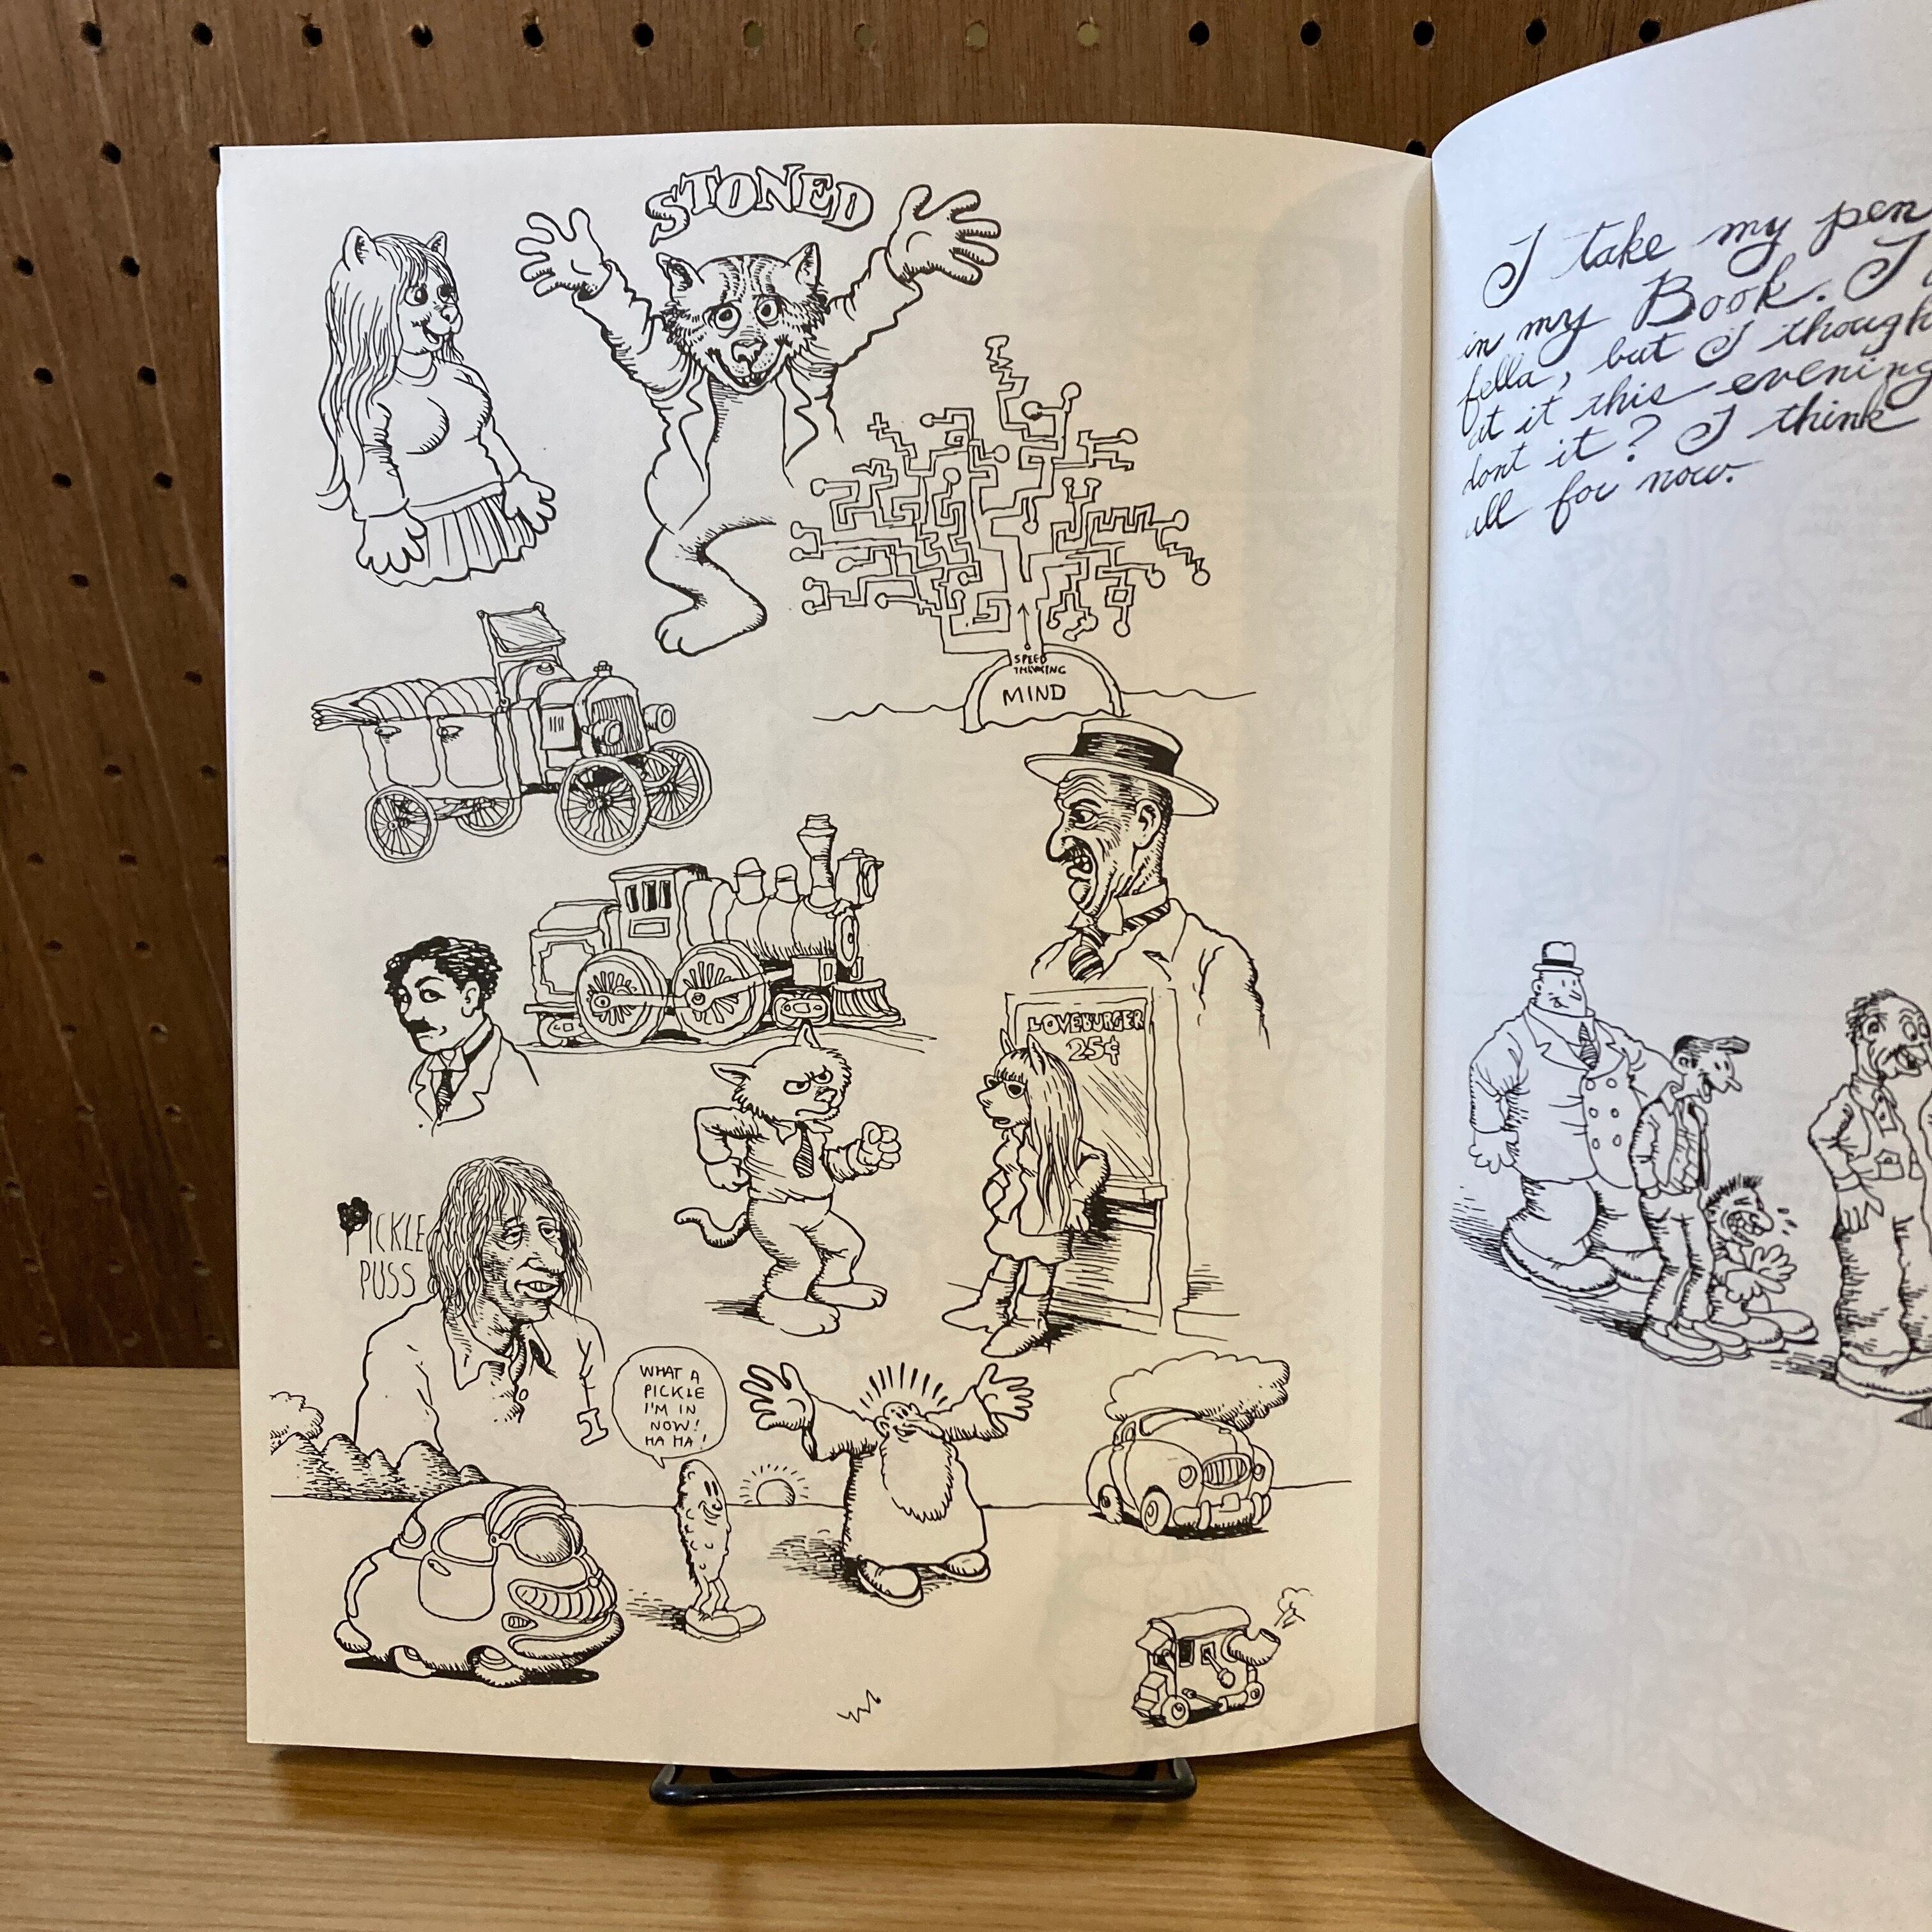 STONED
SPEED
THINKING
MIND
LOVEBURGER
25¢
PICKLE
PUSS
WHAT A
PICKLE
I'M IN
NOW!
HA HA!
I take my pen
in my Book. I
fella, but I though
at it this evening
dont it? I think
all for now.